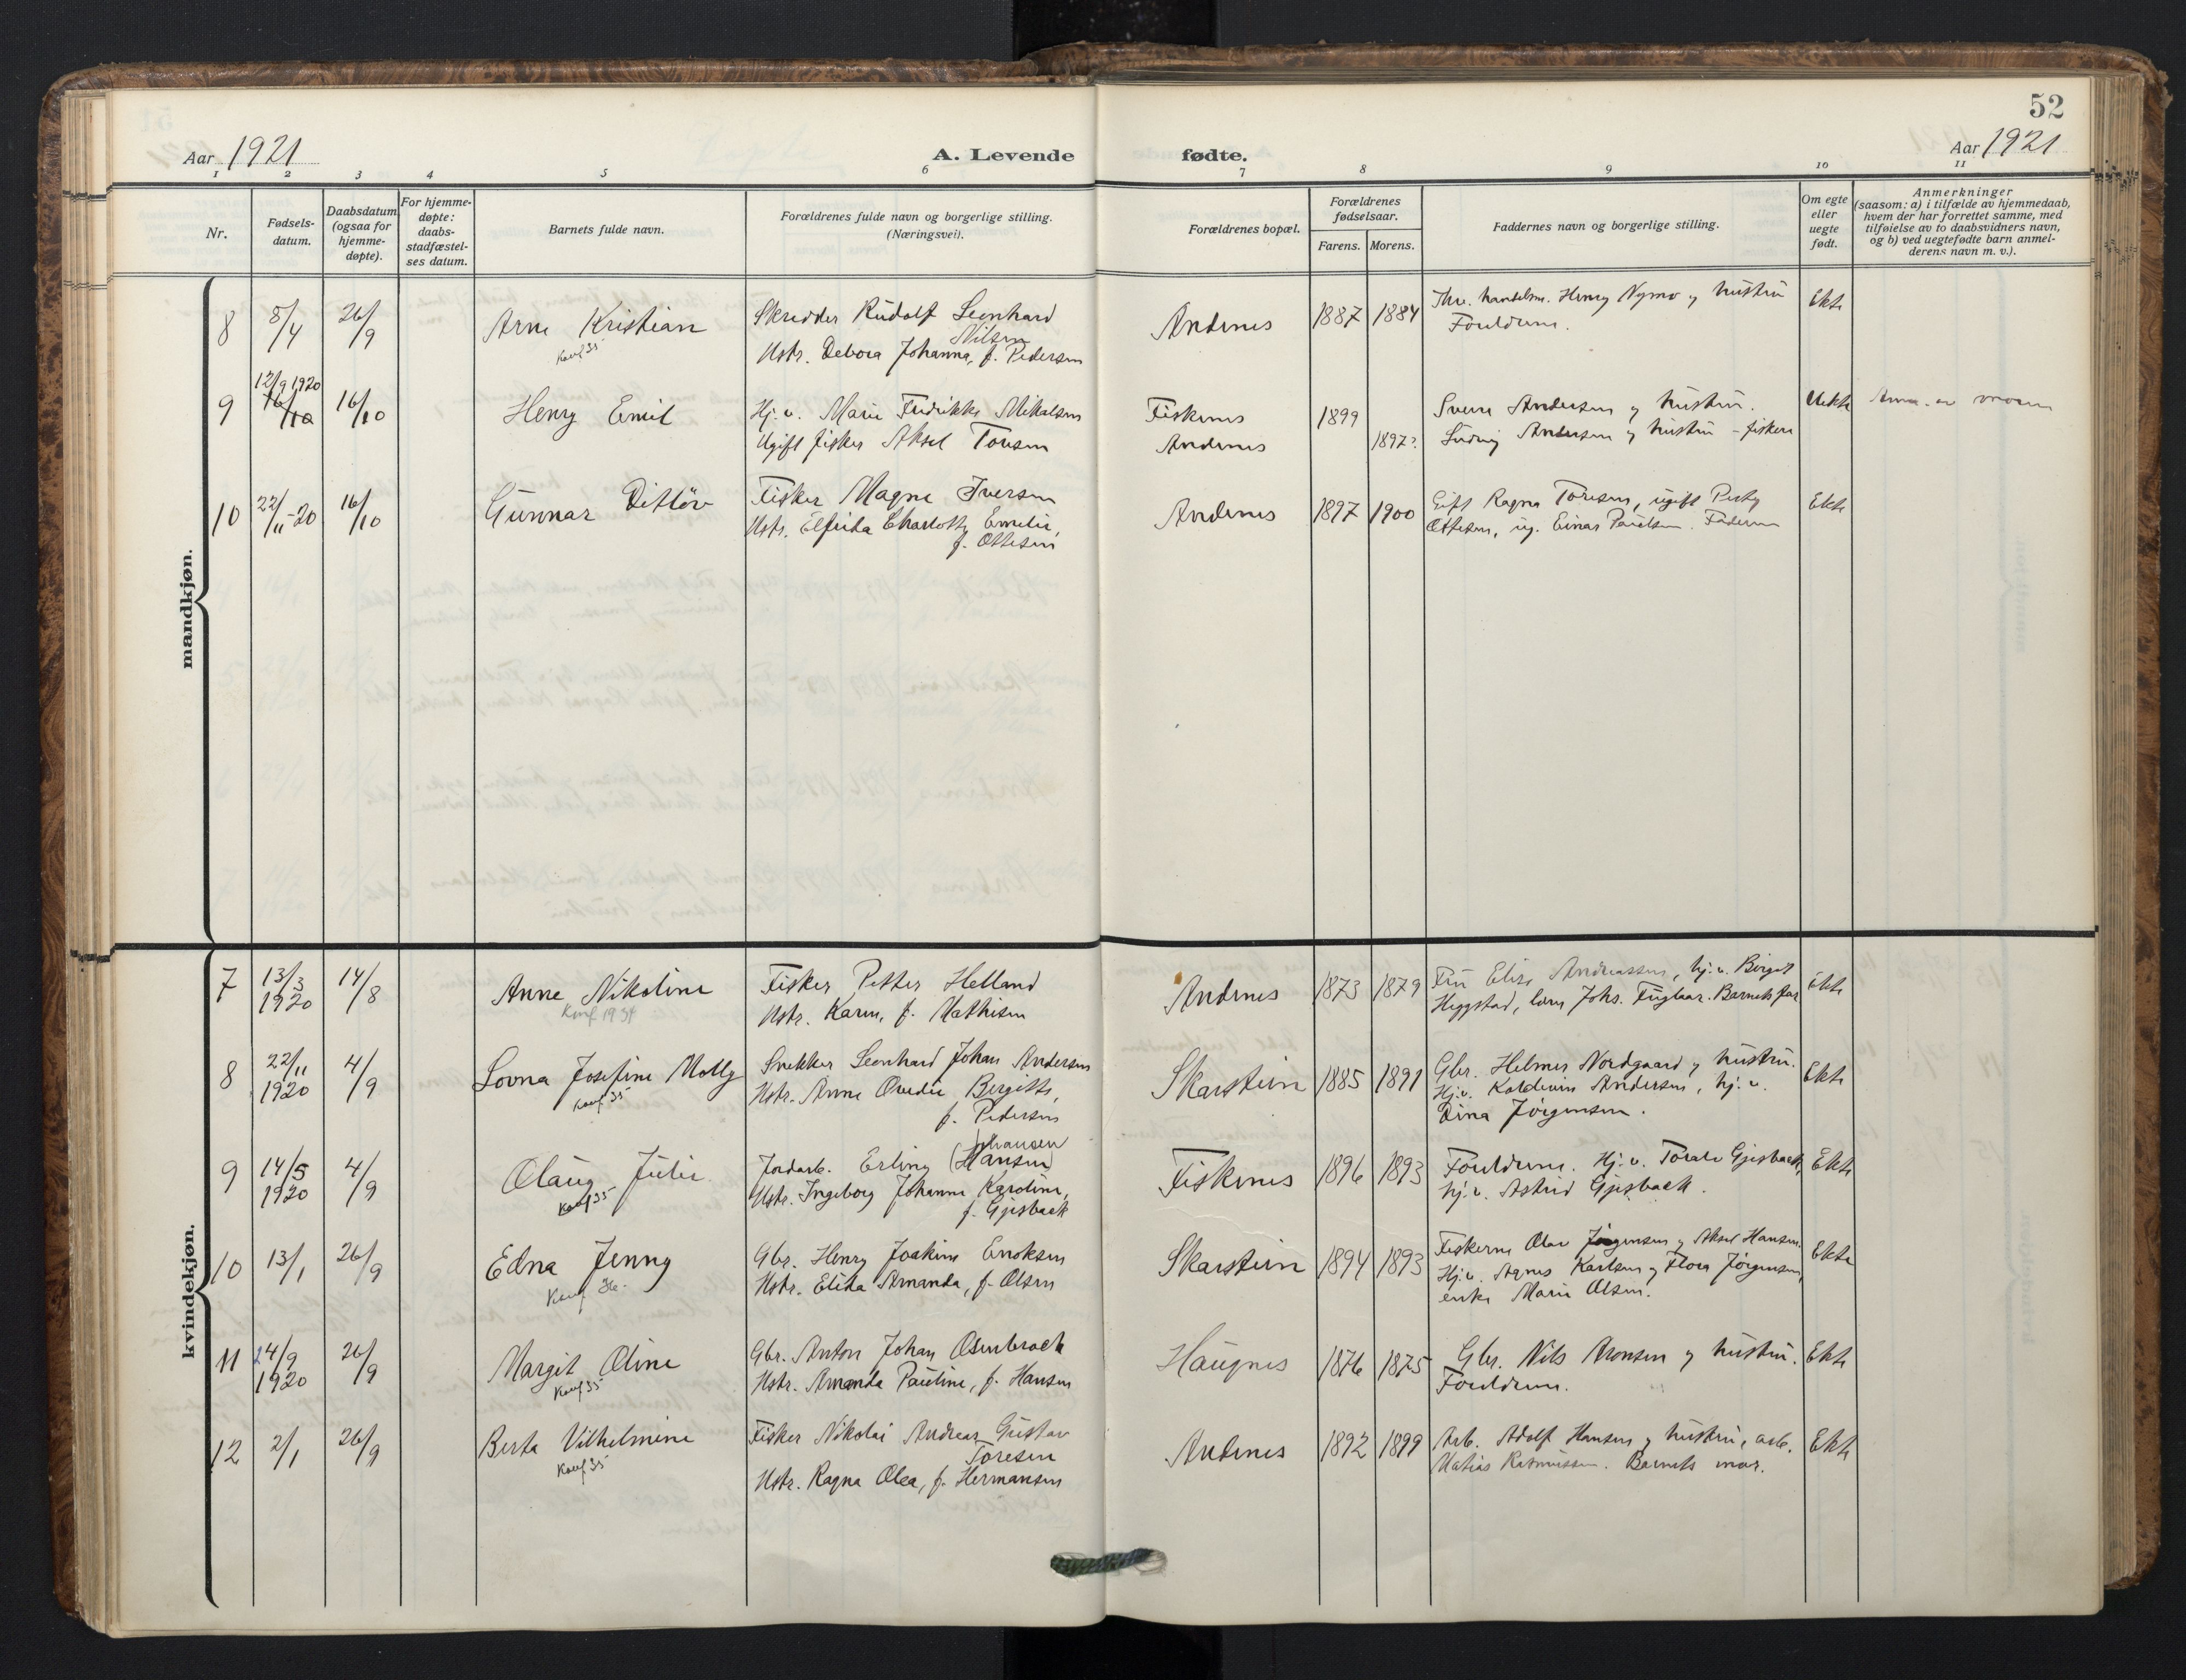 52
Aar 1921
A. Levende
fødte.
Aar 1921
1 2 3 4 5 6 7 8 9 10 11
Nr.
Fødsels-
datum.
Daabsdatum
(ogsaa for
hjemme-
døpte).
For hjemme-
døpte:
daabs-
stadfæstel-
ses datum.
Barnets fulde navn.
Forældrenes fulde navn og borgerlige stilling.
(Næringsvei).
Forældrenes bopæl.
Forældrenes
fødselsaar.
Farens. Morens.
Faddernes navn og borgerlige stilling.
Om egte
eller
uegte
født.
Anmerkninger
(saasom: a) i tilfælde av hjemmedaab,
hvem der har forrettet samme, med
tilføielse av to daabsvidners navn,
og b) ved uegtefødte barn anmel-
derens navn m. v.).
mandkjøn.
8 8/4 26/9 Arne Kristian
Konf 35
Skredder Rudolf Leonhard
Nilsen
Hstr. Debora Johanna, f. Pedersen
Andenes 1887 1884
handelsm. Henry Nymo og hustru
Forældrene.
Ekte
9 12/9 1920
16/10 16/10 Henry Emil
Hj. v. Marie Fredrikke Mikalsen
Ugift fisker Aksel Toresen
Fiskenes 1899
Andenes 1897?
Sverre Andersen og hustru.
Ludvig Andersen og hustru - fiskere
Uekte
Anm. av moren
10 22/11-20 16/10 Gunnar Ditløv
Fisker Magne Iversen
Hstr. Elfrida Charlotte Emelie,
f. Ottesen
Andenes 1897 1900
Gift Ragna Toresen, ugift Petty
Ottesen, ug. Einar Paulsen. Faderen
Ekte
kvindekjøn.
7 13/3
1920 14/8 Anne Nikoline
Konf 1934
Fisker Petter Helland
Hstr. Karen, f. Mathisen
Andenes 1873 1879
Fru Elise Andreassen, hj. v. Birgit
Heggstad, lærer Johs. Fuglaar. Barnets far
Ekte
8 22/11
1920 4/9 Lovna Josefine Molly
Konf 35
Snekker Leonhard Johan Andersen
Hstr. Anne Ovedie Bergitte,
f. Pedersen
Skarstein 1885 1891
Gbr. Helmer Nordgaard og hustru.
Hj. v. Andersen, hj. v.
Dina Jørgensen.
Ekte
9 14/5
1920 4/9 Olaug Julie
Konf 35
Johansen
Jordarb. Erling (Hansen)
Hstr. Ingeborg Johanne Karoline,
f. Gjesbakk
Fiskenes 1896 1893
Forældrene. Hj. v. Torale Gjesbakk,
hj. v. Astrid Gjesbakk.
Ekte
10 13/1 26/9 Edna Jenny
Konf 36.
Gbr. Henry Joakim Enoksen
Hstr. Elida Amanda, f. Olsen
Skarstein 1894 1893
Fiskerne Olav Jørgensen og Aksel Hansen.
Hj. v. Agnes Karlsen og Flora Jørgensen,
enke Marie Olsen.
Ekte
11 24/9
1920 26/9 Margit Oline
Konf 35
Gbr. Anton Johan Osenbroch
Hstr. Amanda Pauline, f. Hansen
Haugnes 1876 1875
Gbr. Nils Aronsen og hustru.
Forældrene.
Ekte
12 2/1 26/9 Berta Vilhelmine
Konf 35
Fisker Nikolai Andreas Gustav
Toresen
Hstr. Ragna Olea, f. Hermansen
Andenes 1892 1899
Arb. Adolf Hansen og hustru, arb.
Matias Rasmussen. Barnets mor.
Ekte